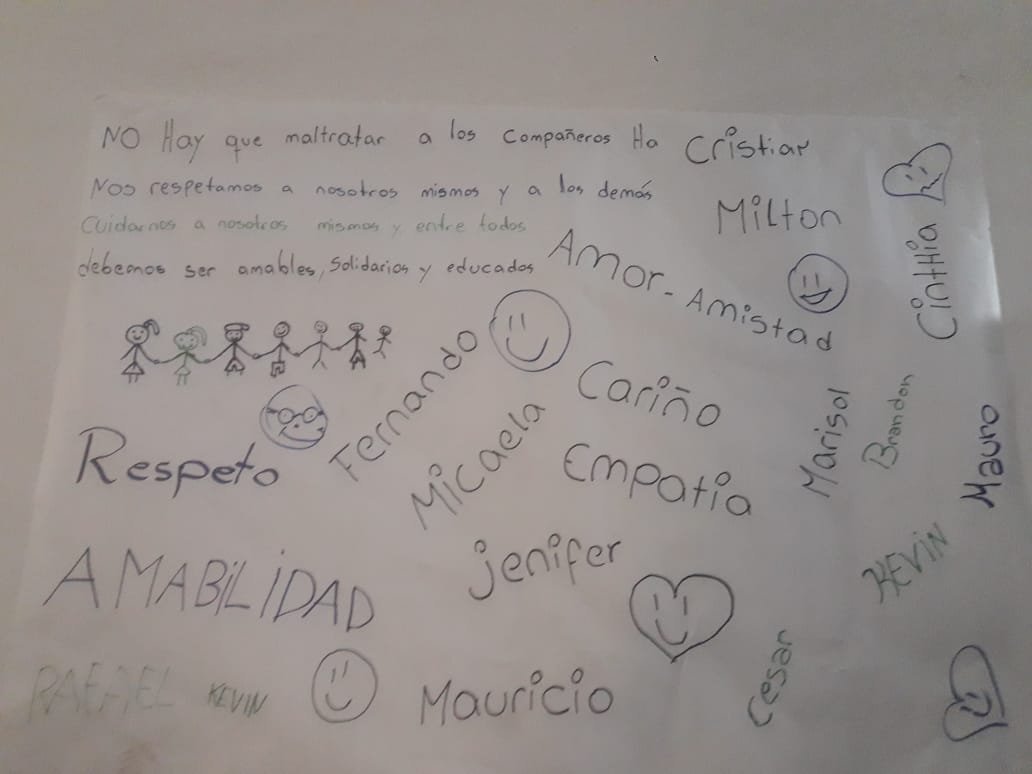 NO Hay que maltratar a los compañeros Ha
Cristian
Nos respetamos a nosotros mismos y a los demás
MiLton
Cuidarnos a nosotros mismos y entre todos
debemos ser amables, solidarios y educados
Amor - Amistad
CintHia
Fernando
Cariño
Micaela
Marisol
Brandon
Mauro
Respeto
Empatia
jenifer
KEVIN
AMABiLiDAD
RAFAEL
KEVIN
Mauricio
Cesar